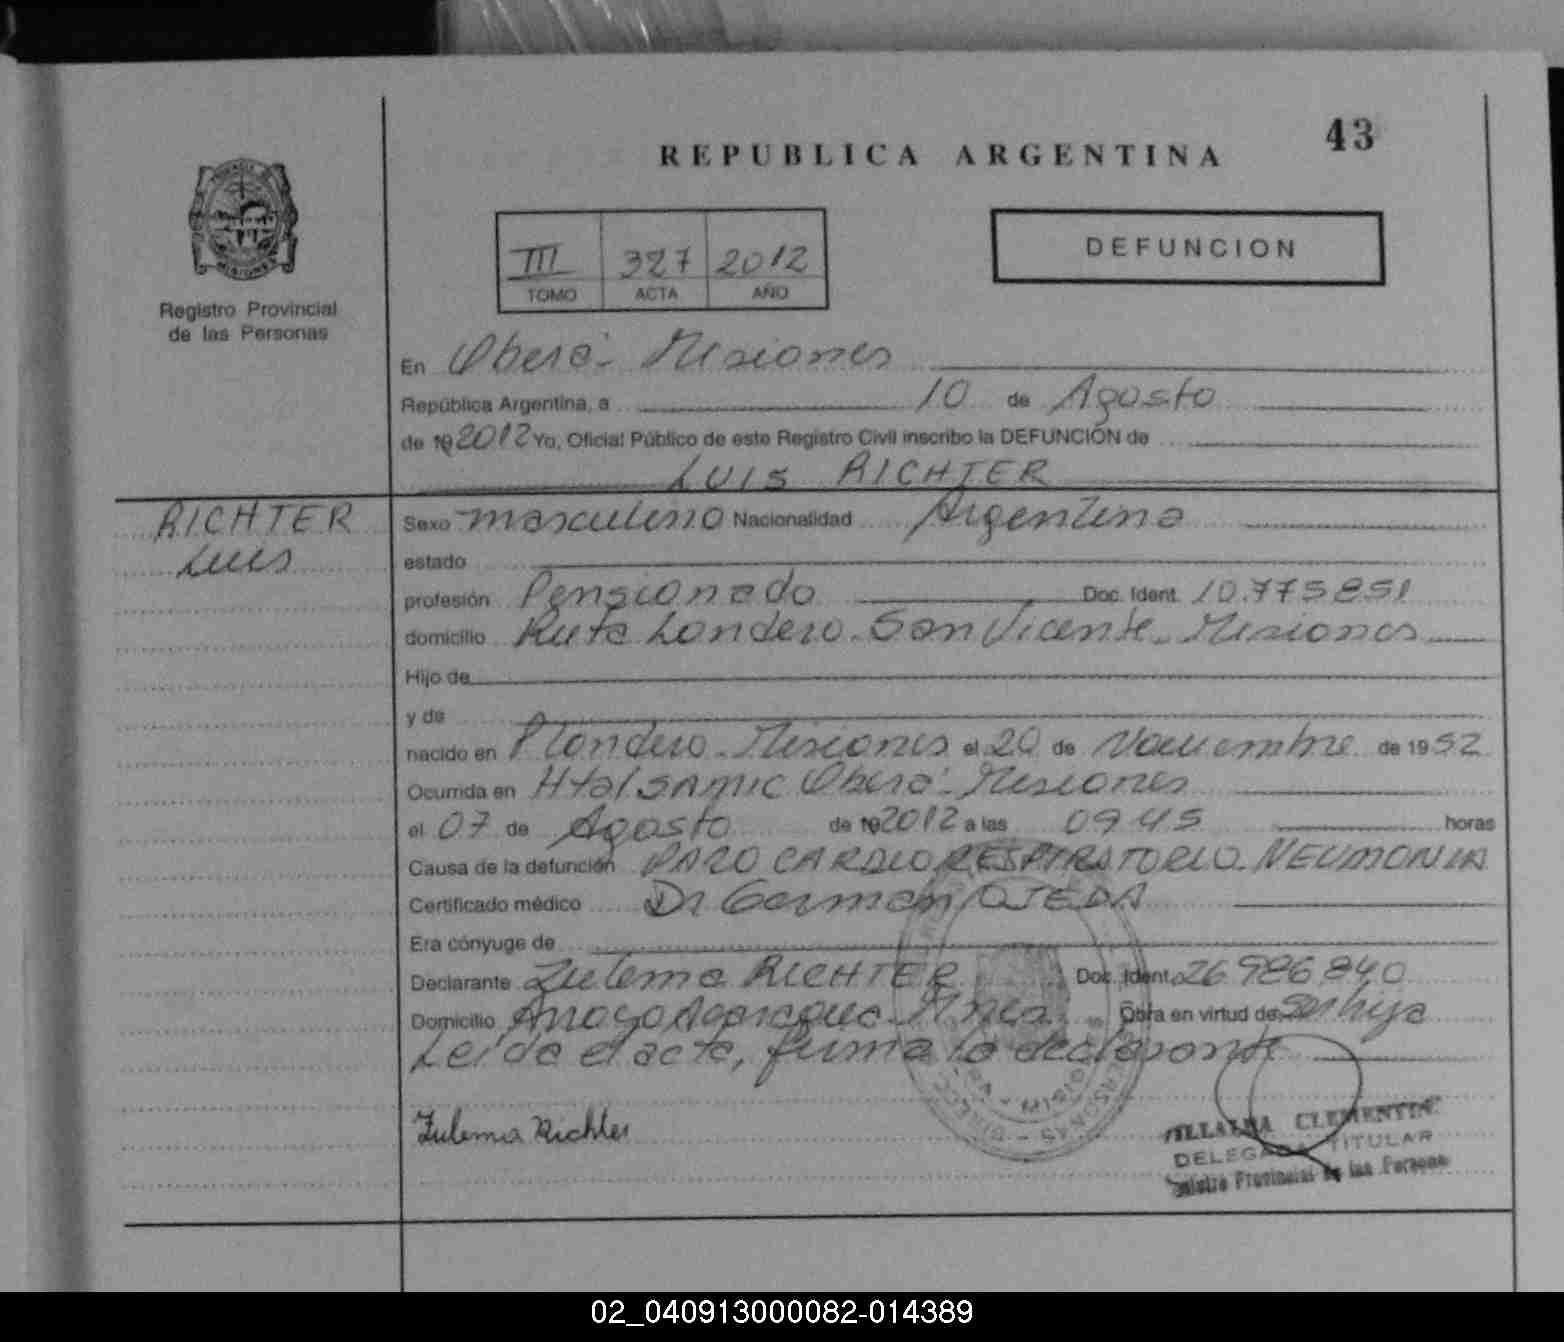 43
REPUBLICA ARGENTINA
III 327 2012
TOMO ACTA AÑO
DEFUNCION
Registro Provincial
de las Personas
En Oberá - Misiones
República Argentina, a 10 de Agosto
de 19 2012 Yo, Oficial Público de este Registro Civil inscribo la DEFUNCIÓN de
LUIS RICHTER
RICHTER
Luis
Sexo masculino Nacionalidad Argentina
estado
profesión Pensionado Doc. Ident. 10.775851
domicilio Ruta Londero - San Vicente - Misiones
Hijo de
y de
nacido en Londero - Misiones el 20 de Noviembre de 1952
Ocurrida en Htal SAMIC Oberá - Misiones
el 07 de Agosto de 19 2012 a las 09 45 horas
Causa de la defunción PARO CARDIO RESPIRATORIO - NEUMONIA
Certificado médico Dr German OJEDA
Era cónyuge de
Declarante Zulema RICHTER Doc. Ident. 26 986 840
Domicilio Arroyo Mnes Obra en virtud de: Ser hija
Leída el acta, firma la declarante
Zulema Richter
VILLALBA CLEMENTINA
DELEGADA TITULAR
Registro Provincial de las Personas
02_040913000082-014389